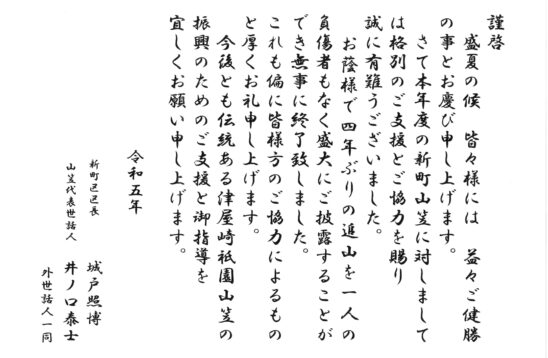 謹啓
盛夏の候　皆々様には　益々ご健勝
の事とお慶び申し上げます。
さて本年度の新町山笠に対しまして
は格別のご支援とご協力を賜り
誠に有難うございました。
お蔭様で四年ぶりの追山を一人の
負傷者もなく盛大にご披露することが
でき無事に終了致しました。
これも偏に皆様方のご協力によるもの
と厚くお礼申し上げます。
今後とも伝統ある津屋崎祇園山笠の
振興のためのご支援と御指導を
宜しくお願い申し上げます。
令和五年
新町区区長　城戸照博
山笠代表世話人　井ノ口泰士
外世話人一同